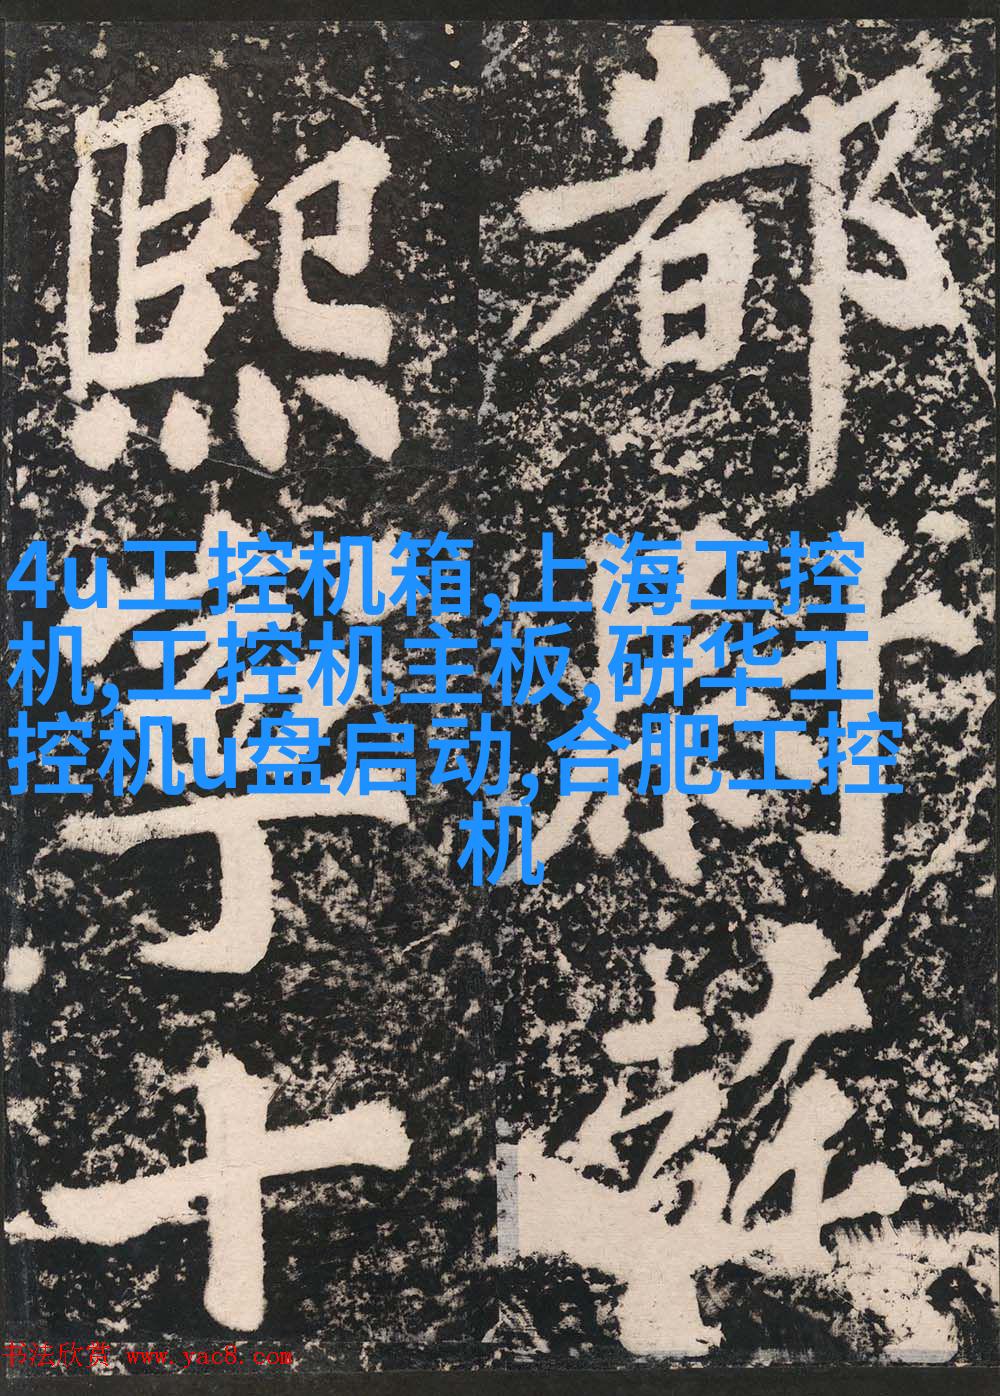 都尉
熙寧十
4u工控机箱,上海工控
机,工控机主板,研华工
控机u盘启动,合肥工控
机
书法欣赏 www.yac8.com